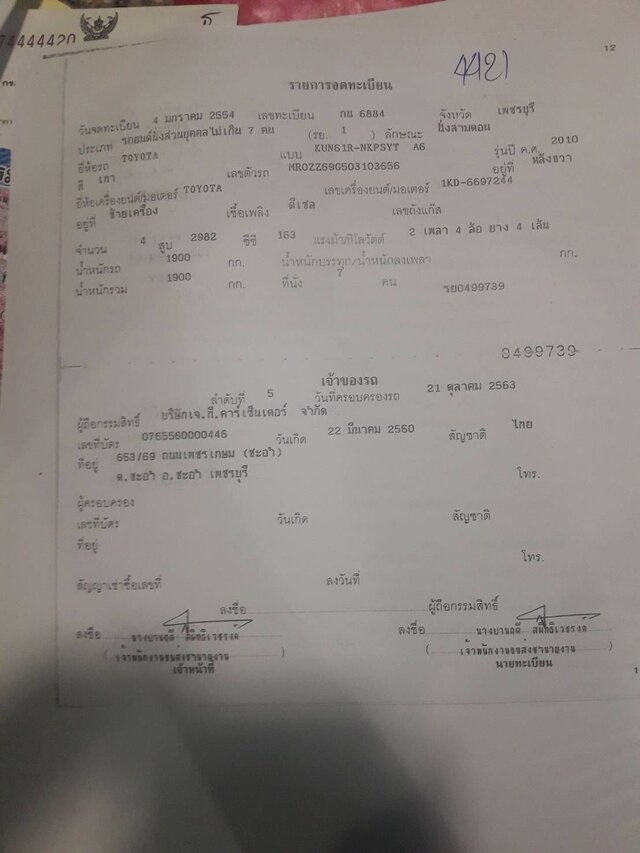 74444420
12
4421
รายการจดทะเบียน
วันจดทะเบียน 4 มกราคม 2554 เลขทะเบียน กน 6884 จังหวัด เพชรบุรี
ประเภท รถยนต์นั่งส่วนบุคคลไม่เกิน 7 คน (รย. 1 ) ลักษณะ นั่งสามตอน
ยี่ห้อรถ TOYOTA แบบ KUN61R-NKPSYT A6 รุ่นปี ค.ศ. 2010
สี เทา เลขตัวรถ MR0ZZ69G503103656 อยู่ที่ หลังขวา
ยี่ห้อเครื่องยนต์/มอเตอร์ TOYOTA เลขเครื่องยนต์/มอเตอร์ 1KD-6697244
อยู่ที่ ซ้ายเครื่อง เชื้อเพลิง ดีเซล เลขถังแก๊ส
จำนวน 4 สูบ 2982 ซีซี 163 แรงม้า/กิโลวัตต์ 2 เพลา 4 ล้อ ยาง 4 เส้น
น้ำหนักรถ 1900 กก. น้ำหนักบรรทุก/น้ำหนักลงเพลา กก.
น้ำหนักรวม 1900 กก. ที่นั่ง 7 คน รย0499739
0499739
เจ้าของรถ
ลำดับที่ 5 วันที่ครอบครองรถ 21 ตุลาคม 2563
ผู้ถือกรรมสิทธิ์ บริษัทเจ.กี.คาร์เซ็นเตอร์ จำกัด
เลขที่บัตร 0765560000446 วันเกิด 22 มีนาคม 2560 สัญชาติ ไทย
ที่อยู่ 653/69 ถนนเพชรเกษม (ชะอำ)
ต.ชะอำ อ.ชะอำ เพชรบุรี โทร.
ผู้ครอบครอง
เลขที่บัตร วันเกิด สัญชาติ
ที่อยู่
โทร.
สัญญาเช่าซื้อเลขที่ ลงวันที่
ลงชื่อ ผู้ถือกรรมสิทธิ์
ลงชื่อ ลงชื่อ
( เจ้าพนักงานขนส่งชำนาญงาน ) ( เจ้าพนักงานขนส่งชำนาญงาน )
เจ้าหน้าที่ นายทะเบียน